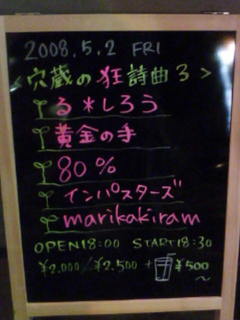 2008.5.2 FRI
<穴蔵の狂詩曲3>
る*しろう
黄金の手
80%
インパスターズ
marikakiram
OPEN18:00 START18:30
¥2.000/¥2.500 + ¥500~